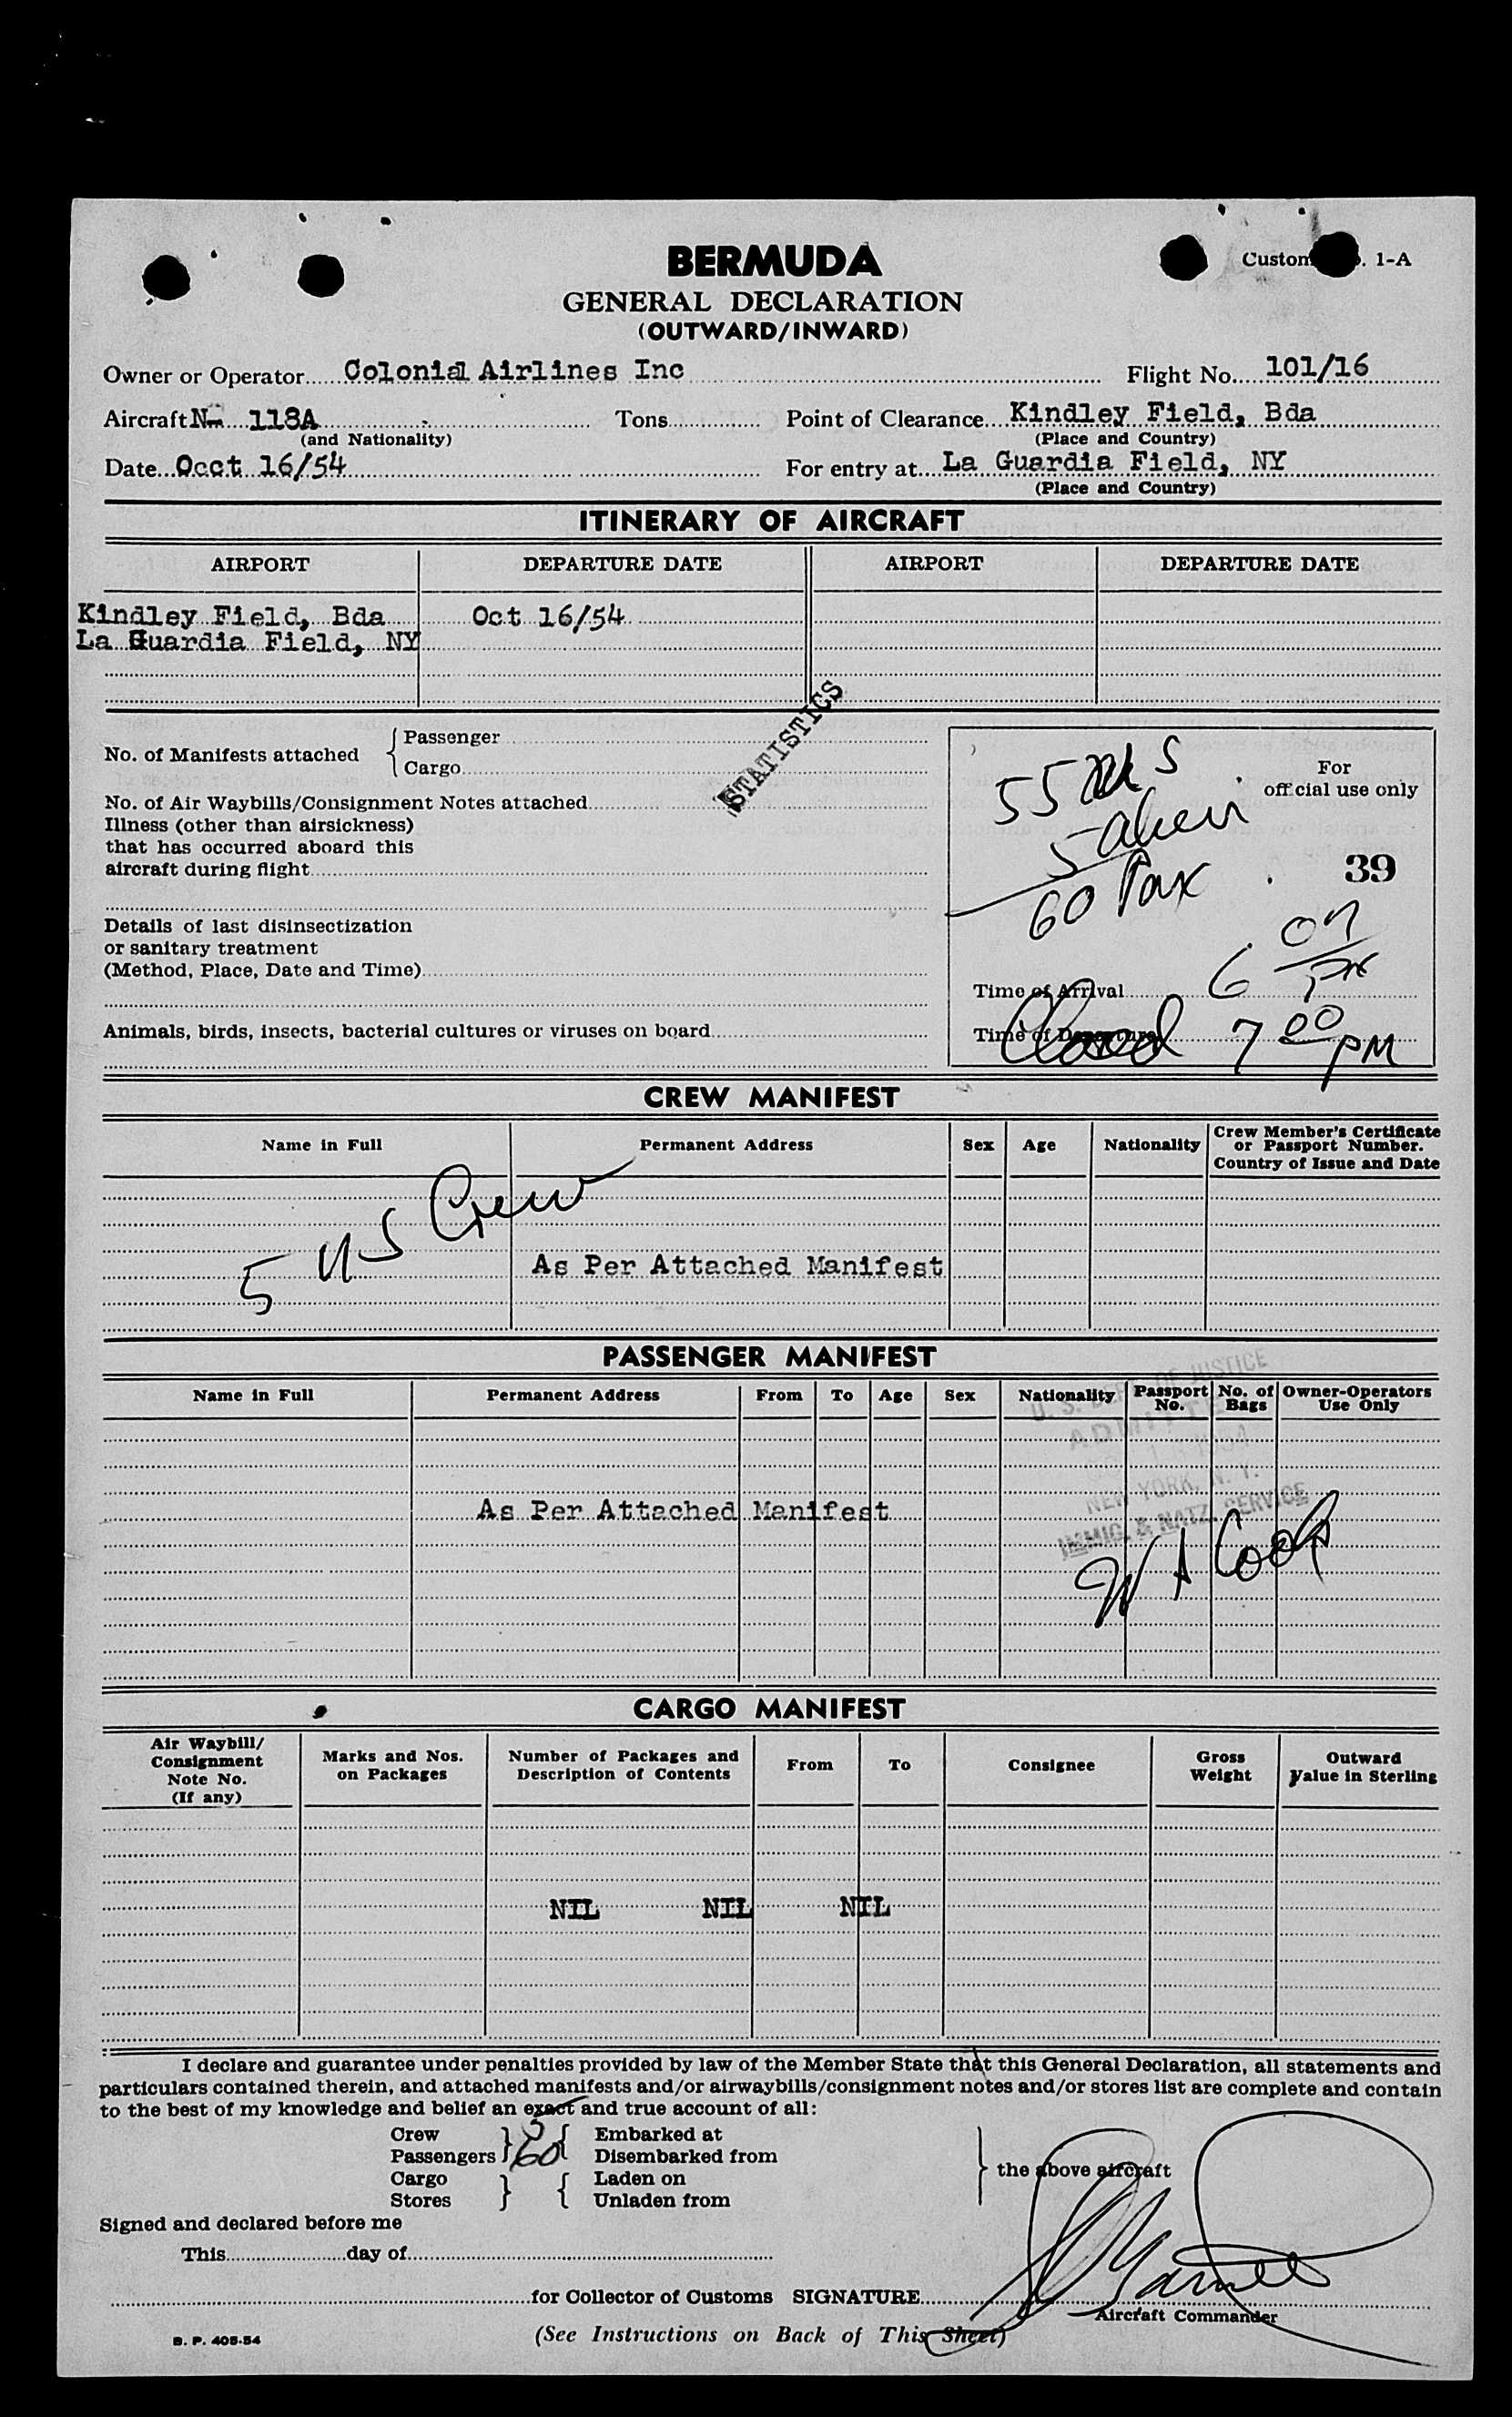 BERMUDA
Custom . 1-A
GENERAL DECLARATION
(OUTWARD/INWARD)
Owner or Operator Colonial Airlines Inc Flight No. 101/16
Aircraft N 118A Tons Point of Clearance Kindley Field, Bda
(and Nationality) (Place and Country)
Date Ocot 16/54 For entry at La Guardia Field, NY
(Place and Country)
ITINERARY OF AIRCRAFT
AIRPORT DEPARTURE DATE AIRPORT DEPARTURE DATE
Kindley Field, Bda Oct 16/54
La Guardia Field, NY
STATISTICS
No. of Manifests attached { Passenger
Cargo
No. of Air Waybills/Consignment Notes attached
Illness (other than airsickness)
that has occurred aboard this
aircraft during flight
Details of last disinsectization
or sanitary treatment
(Method, Place, Date and Time)
Animals, birds, insects, bacterial cultures or viruses on board
For
official use only
55 S
5 alien
60 Pax
39
Time of Arrival 6 07 PM
Time of Departure Closed 7 00 PM
CREW MANIFEST
Name in Full Permanent Address Sex Age Nationality Crew Member's Certificate
or Passport Number.
Country of Issue and Date
5 US Crew
As Per Attached Manifest
PASSENGER MANIFEST
Name in Full Permanent Address From To Age Sex Nationality Passport No. No. of Bags Owner-Operators Use Only
U. S. DEPT. OF JUSTICE
ADMITTED
NEW YORK, N. Y.
IMMIG. & NATZ. SERVICE
As Per Attached Manifest
W A Cook
CARGO MANIFEST
Air Waybill/
Consignment
Note No.
(If any)
Marks and Nos.
on Packages
Number of Packages and
Description of Contents
From To Consignee
Gross
Weight
Outward
Value in Sterling
NIL NIL NIL
I declare and guarantee under penalties provided by law of the Member State that this General Declaration, all statements and
particulars contained therein, and attached manifests and/or airwaybills/consignment notes and/or stores list are complete and contain
to the best of my knowledge and belief an exact and true account of all:
Crew } 5 { Embarked at
Passengers 60 Disembarked from } the above aircraft
Cargo } { Laden on
Stores Unladen from
Signed and declared before me
This day of
for Collector of Customs SIGNATURE
Aircraft Commander
B. P. 405-54
(See Instructions on Back of This Sheet)